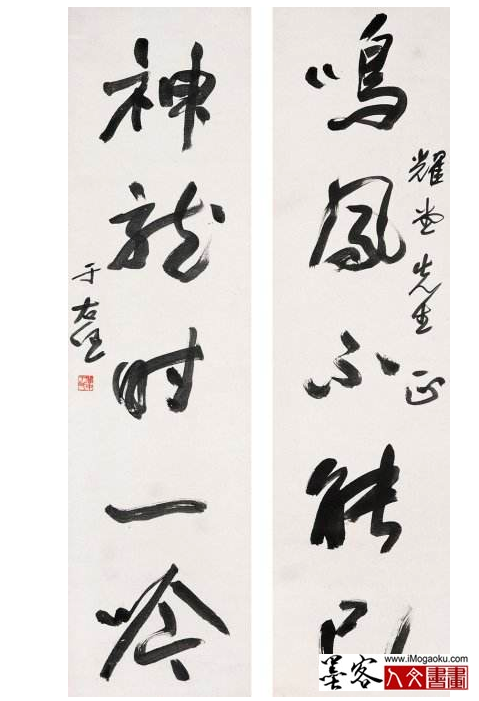 鳴鳳不能
耀堂先生正
神龍時一吟
于右任
墨客
www.iMogaoku.com
人文書畫